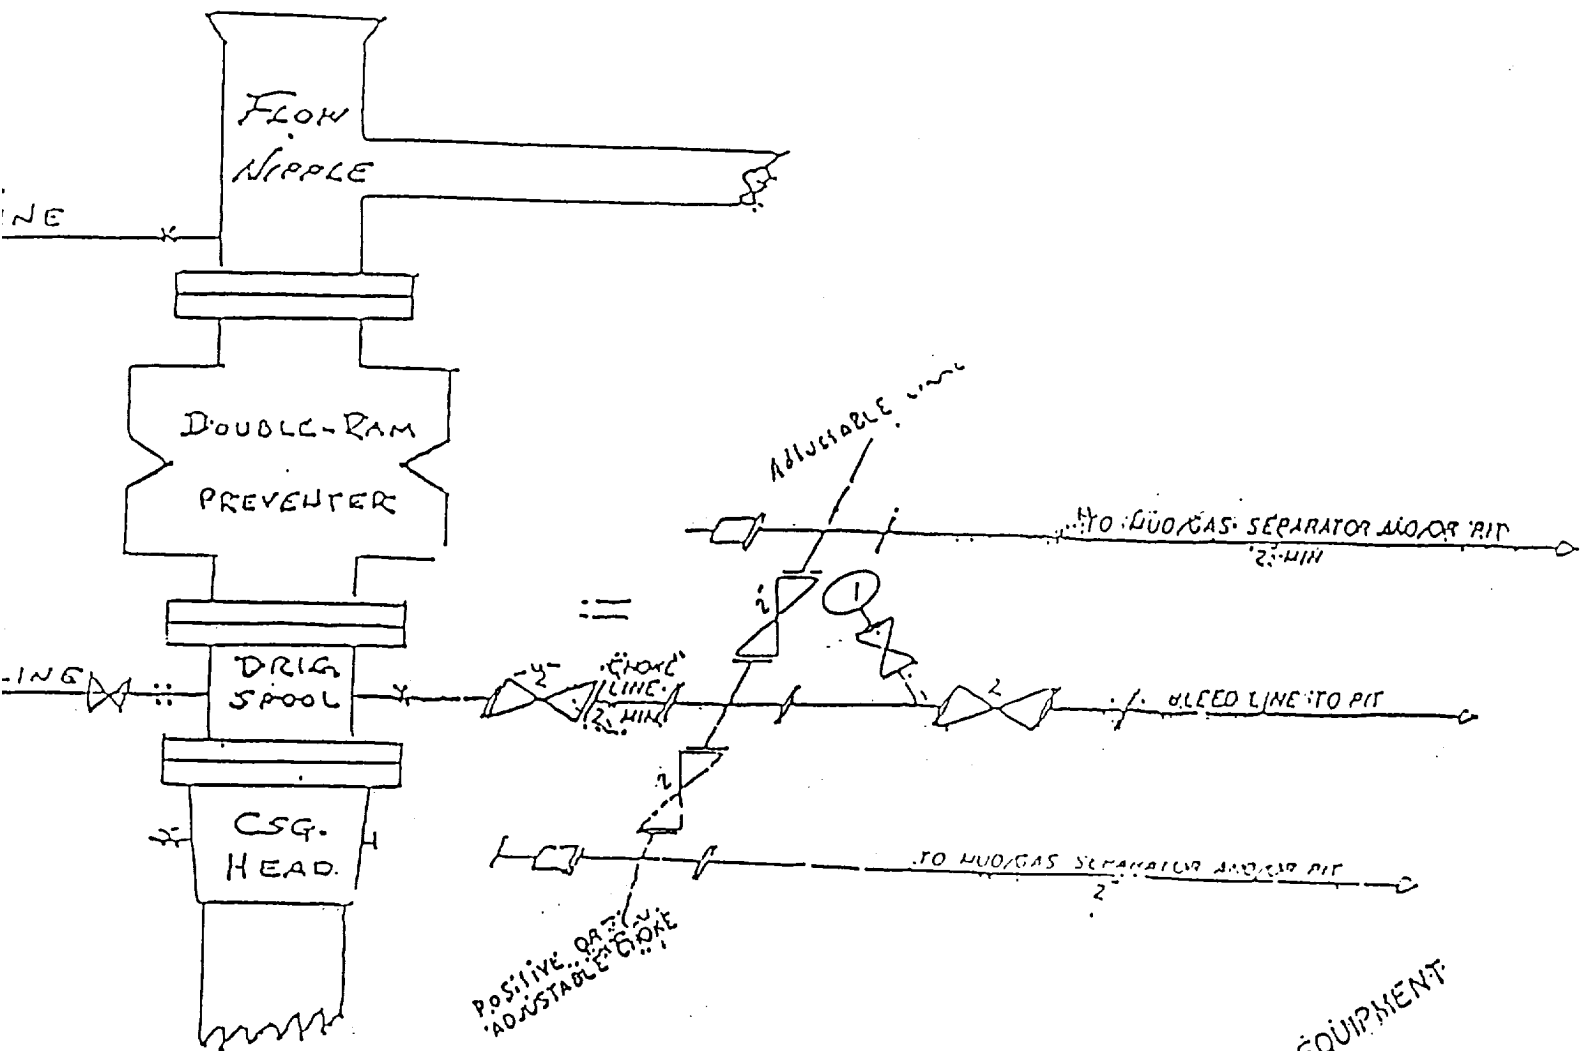 FLOW
NIPPLE
INE
DOUBLE-RAM
PREVENTER
ADJUSTABLE
TO MUD/GAS SEPARATOR AND/OR PIT
2" MIN
1
2
DRLG
SPOOL
2
"CHOKE"
LINE
2" MIN
2
BLEED LINE TO PIT
2
CSG.
HEAD
TO MUD/GAS SEPARATOR AND/OR PIT
2"
POSITIVE OR
ADJUSTABLE CHOKE
EQUIPMENT